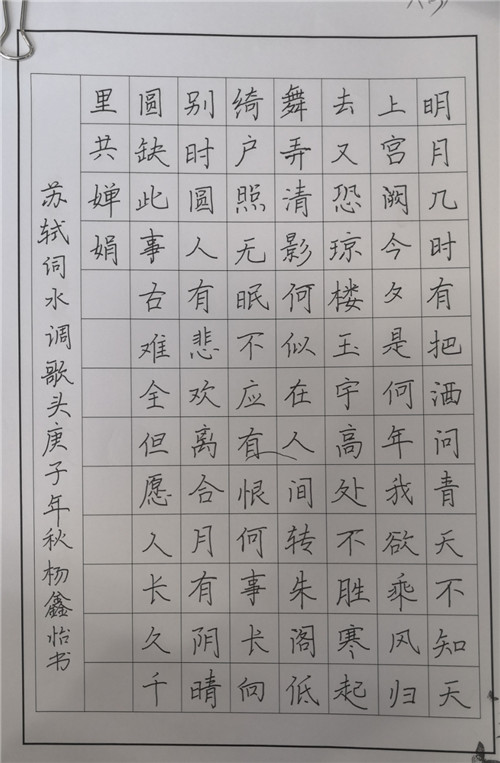 明月几时有把酒问青天不知天
上宫阙今夕是何年我欲乘风归
去又恐琼楼玉宇高处不胜寒起
舞弄清影何似在人间转朱阁低
绮户照无眠不应有恨何事长向
别时圆人有悲欢离合月有阴晴
圆缺此事古难全但愿人长久千
里共婵娟
苏轼词水调歌头庚子年秋杨鑫怡书